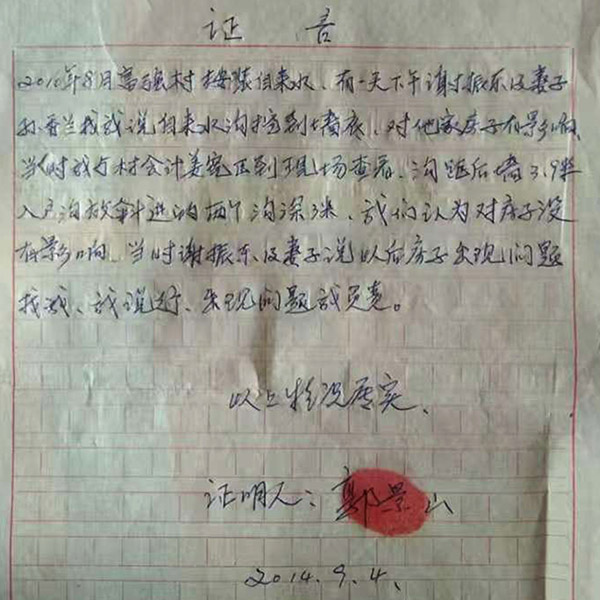 证 言
2010年8月高砬村按装自来水、有一天下午谢振东及妻子
孙香兰找我说自来水沟挖到墙底、对他家房子有影响、
当时我与村会计姜宪臣到现场查看、沟距后墙3.9米
入户沟放斜进的两个沟深3米、我们认为对房子没
有影响、当时谢振东及妻子说以后房子出现问题
找我、我说行、出现问题我负责。
以上情况属实、
证明人：郭景山
2014.9.4、